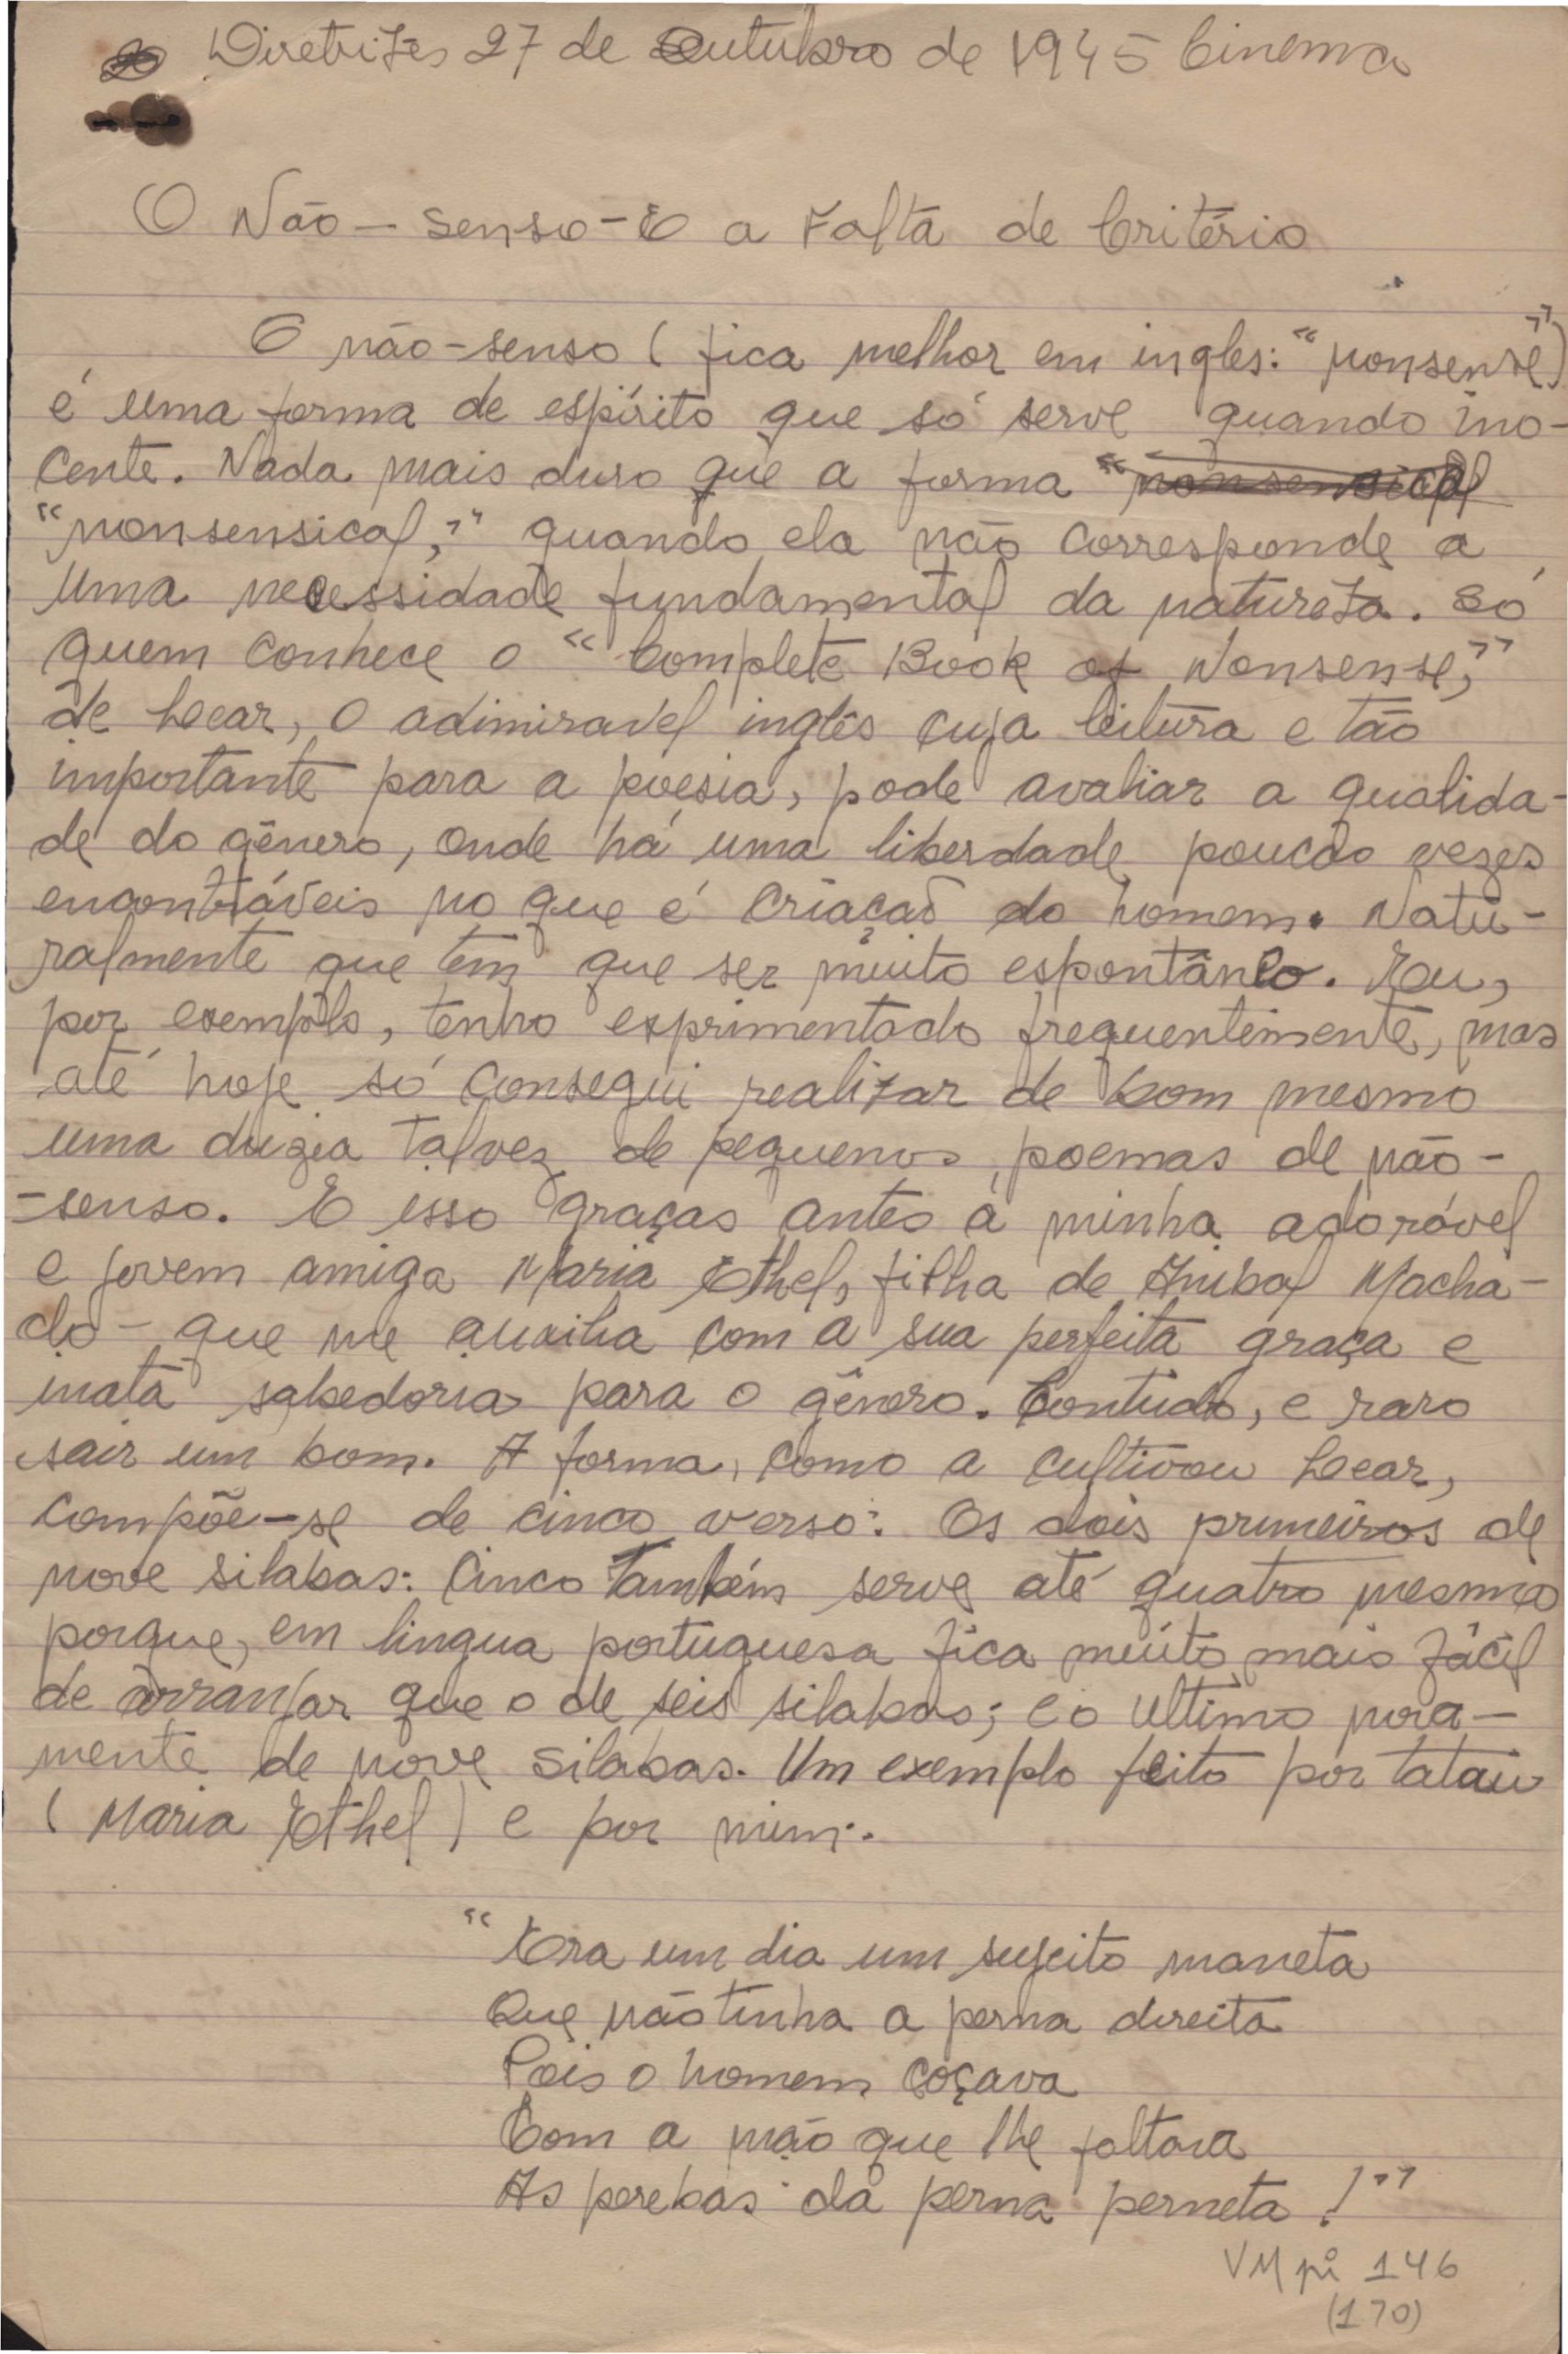 Diretrizes 27 de Outubro de 1945 Cinema
O Não - senso - E a Falta de Critério
O não-senso (fica melhor em ingles: "nonsense")
é uma forma de espírito que só serve quando ino-
cente. Nada mais duro que a forma "nonsensical
"nonsensical," quando ela não corresponde a
uma necessidade fundamental da natureza. Só
quem conhece o "Complete Book of Nonsense,"
de Lear, o adimiravel inglês cuja leitura e tão
importante para a poesia, pode avaliar a qualida-
de do gênero, onde há uma liberdade poucas vezes
encontráveis no que é criação do homem. Natu-
ralmente que tem que ser muito espontâneo. Eu,
por exemplo, tenho exprimentado frequentimente, mas
até hoje só consegui realizar de bom mesmo
uma duzia talvez de pequenos poemas de não-
-senso. E isso graças antes à minha adorável
e jovem amiga Maria Ethel, filha de Anibal Macha-
do - que me auxilia com a sua perfeita graça e
inata sabedoria para o gênero. Contudo, e raro
sair um bom. A forma, como a cultivou Lear,
compõe-se de cinco verso: Os dois primeiros de
nove silabas: Cinco também serve até quatro mesmo
porque, em lingua portuguesa fica muito mais fácil
de arranjar que o de seis silabas; e o ultimo nova-
mente de nove silabas. Um exemplo feito por Tatau
(Maria Ethel) e por mim:.
"Era um dia um sujeito maneta
Que não tinha a perna direita
Pois o homem coçava
Com a mão que lhe faltava
As perebas da perna perneta!"
VM pi 146
(170)